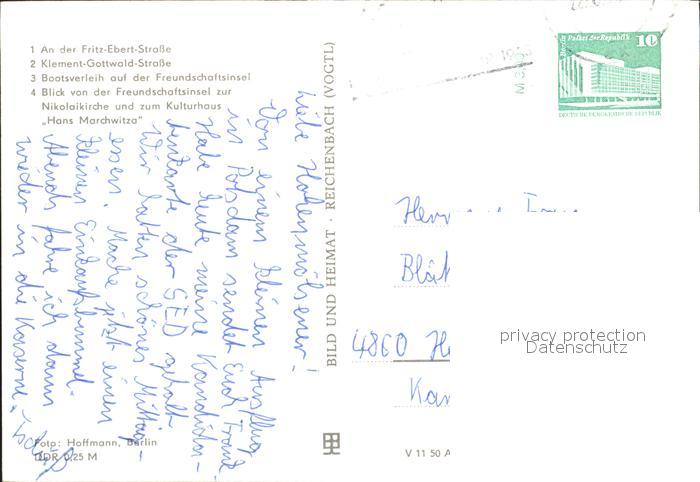 1 An der Fritz-Ebert-Straße
2 Klement-Gottwald-Straße
3 Bootsverleih auf der Freundschaftsinsel
4 Blick von der Freundschaftsinsel zur
Nikolaikirche und zum Kulturhaus
„Hans Marchwitza“
Liebe Hohenmölsener!
Von einem kleinen Ausflug
in Potsdam sendet Euch Frank
Habe heute meine Kandidaten-
karte der SED geholt
Wir hatten schönes Mittag-
essen. Mache jetzt einen
kleinen Einkaufsbummel.
Abends fahre ich dann
wieder in die Kaserne.
Foto: Hoffmann, Berlin
DDR 0,25 M
BILD UND HEIMAT · REICHENBACH (VOGTL)
V 11 50 A
Berlin Palast der Republik
10
DEUTSCHE DEMOKRATISCHE REPUBLIK
Herrn
Blät
4860 H
Kar
privacy protection
Datenschutz